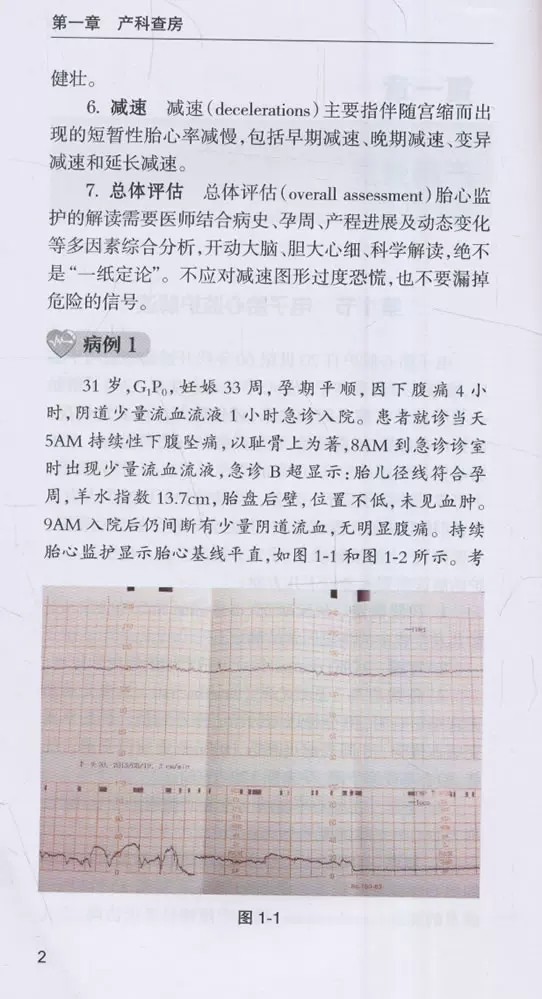 第一章 产科查房
健壮。
6. 减速 减速(decelerations)主要指伴随宫缩而出
现的短暂性胎心率减慢,包括早期减速、晚期减速、变异
减速和延长减速。
7. 总体评估 总体评估(overall assessment)胎心监
护的解读需要医师结合病史、孕周、产程进展及动态变化
等多因素综合分析,开动大脑、胆大心细、科学解读,绝不
是“一纸定论”。不应对减速图形过度恐慌,也不要漏掉
危险的信号。
病例 1
31 岁,G₁P₀,妊娠 33 周,孕期平顺,因下腹痛 4 小
时,阴道少量流血流液 1 小时急诊入院。患者就诊当天
5AM 持续性下腹坠痛,以耻骨上为著,8AM 到急诊诊室
时出现少量流血流液,急诊 B 超显示:胎儿径线符合孕
周,羊水指数 13.7cm,胎盘后壁,位置不低,未见血肿。
9AM 入院后仍间断有少量阴道流血,无明显腹痛。持续
胎心监护显示胎心基线平直,如图 1-1 和图 1-2 所示。考
图 1-1
2